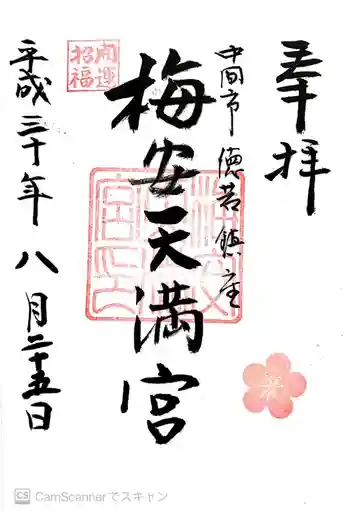 奉拝
中間市 徳若鎮座
梅安天満宮
開運
招福
平成三十年八月二十五日
CS CamScannerでスキャン